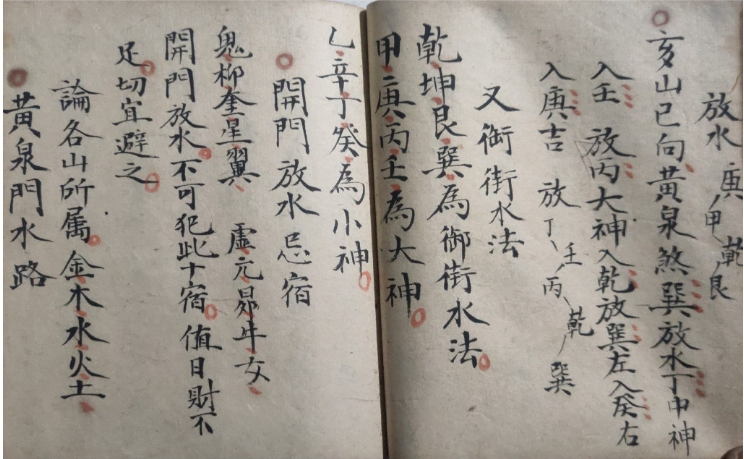 放水 庚甲乾艮
亥山巳向黄泉煞巽放水丁申神
入壬 放丙大神入乾放巽左入癸右
入庚吉 放丁壬丙乾巽
又衘街水法
乾坤艮巽為御街水法
甲庚丙壬為大神
乙辛丁癸為小神
開門放水忌宿
鬼柳奎星翼 虛亢昴牛女
開門放水不可犯此十宿值日財不
足切宜避之
論各山所屬金木水火土
黃泉門水路